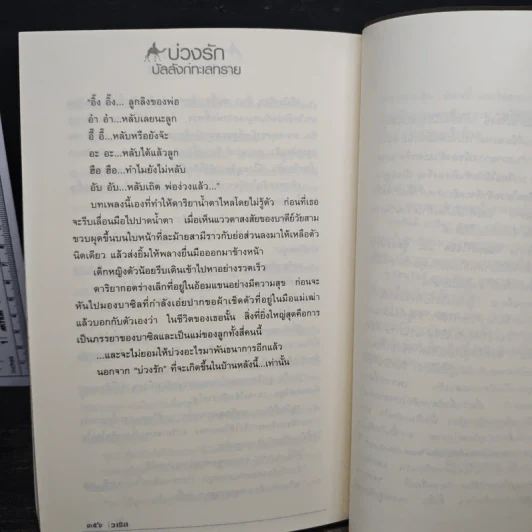 บ่วงรัก
บัลลังก์ทะเลทราย
"อิ๊ง อิ๊ง... ลูกลิงของพ่อ
อำ อำ...หลับเลยนะลูก
อี๊ อี๊...หลับหรือยังจ๊ะ
อะ อะ...หลับได้แล้วลูก
ฮือ ฮือ...ทำไมยังไม่หลับ
อับ อับ...หลับเถิด พ่อง่วงแล้ว..."
บทเพลงนี้เองที่ทำให้ดาริยาน้ำตาไหลโดยไม่รู้ตัว ก่อนที่เธอ
จะรีบเลื่อนมือไปปาดน้ำตา เมื่อเห็นแววตาสงสัยของบาดีย์วัยสาม
ขวบผุดขึ้นบนใบหน้าที่ละม้ายสามีราวกับย่อส่วนลงมาให้เหลือตัว
นิดเดียว แล้วส่งยิ้มให้พลางยื่นมือออกมาข้างหน้า
เด็กหญิงตัวน้อยรีบเดินเข้าไปหาอย่างรวดเร็ว
ดาริยากอดร่างเล็กที่อยู่ในอ้อมแขนอย่างมีความสุข ก่อนจะ
หันไปมองบาซิลที่กำลังเอ่ยปากขอผ้าเช็ดตัวที่อยู่ในมือแม่เฒ่า
แล้วบอกกับตัวเองว่า ในชีวิตของเธอนั้น สิ่งที่ยิ่งใหญ่สุดคือการ
เป็นภรรยาของบาซิลและเป็นแม่ของลูกทั้งสี่คนนี้
...และจะไม่ยอมให้บ่วงอะไรมาพันธนาการอีกแล้ว
นอกจาก "บ่วงรัก" ที่จะเกิดขึ้นในบ้านหลังนี้...เท่านั้น
๓๕๖ | วาริส